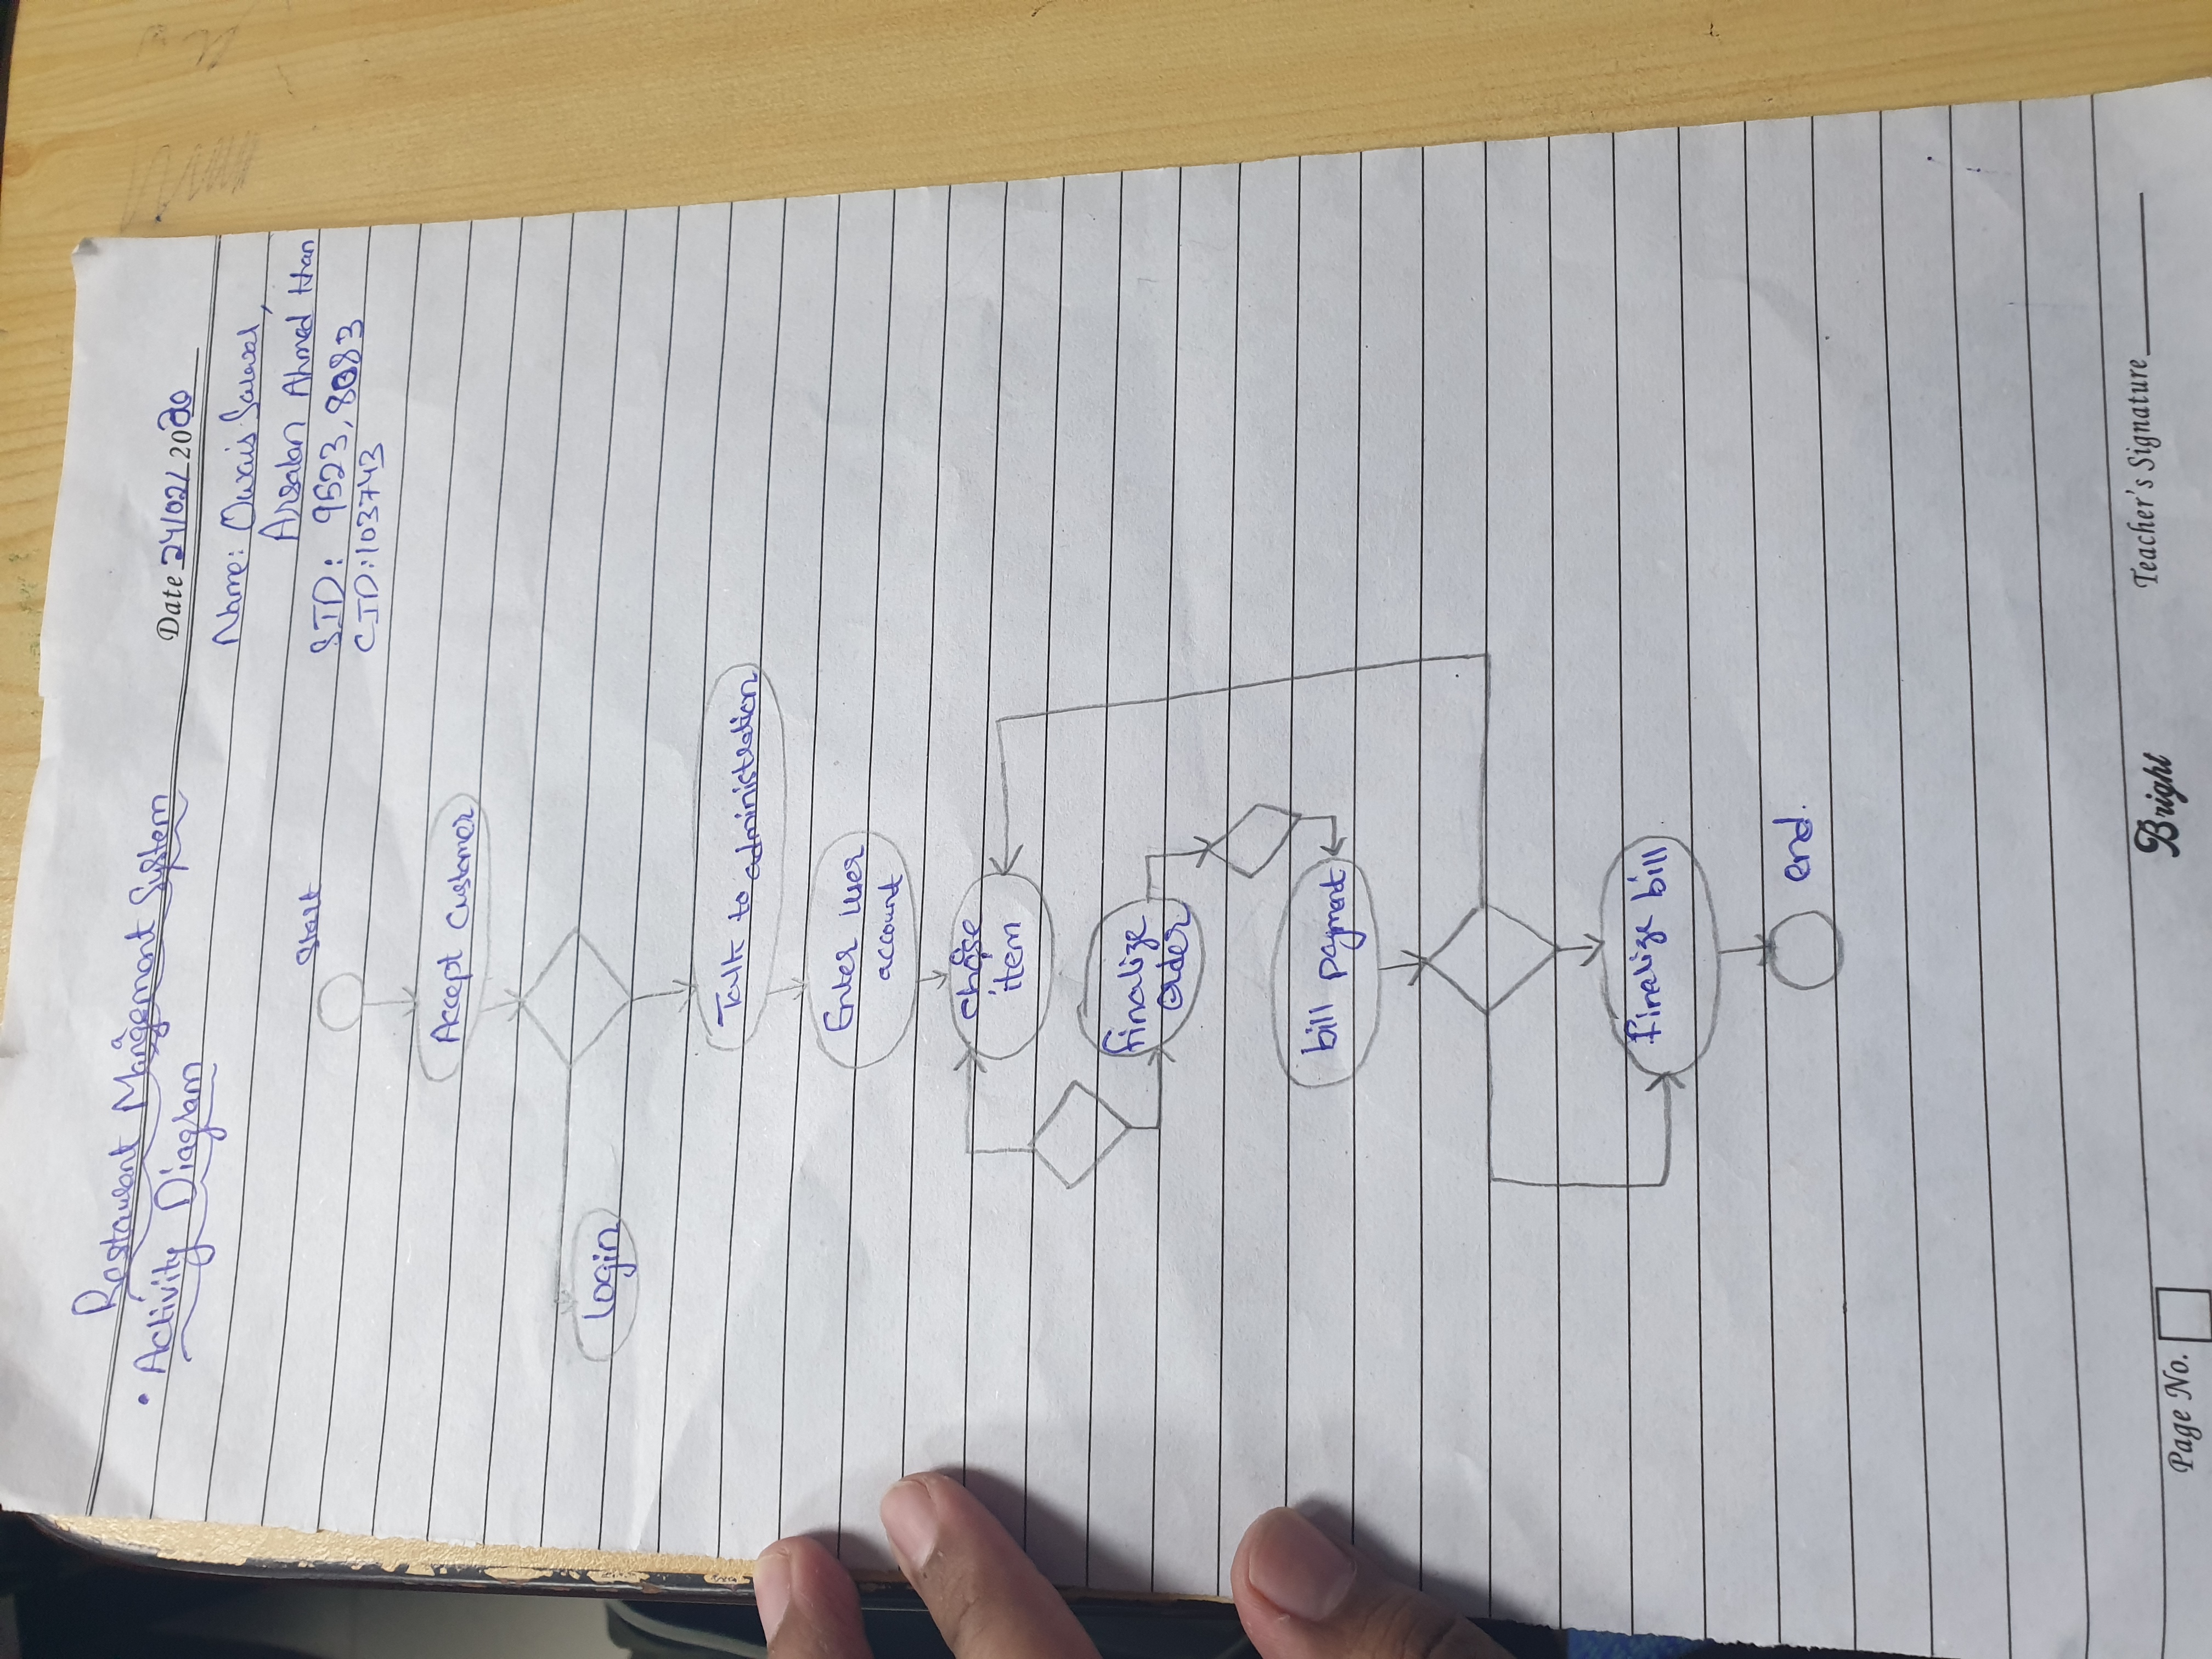 Restaurant Mangement System
• Activity Diagram
Date 24/02/ 2020
Name: Owais
Arsalan Ahmed Khan
SID: 9523, 8083
CID:103743
Start
Accept Customer
login
Talk to administration
Enter user
account
chose
item
finalize
Order
bill payment
finalize bill
end.
Page No.
Bright
Teacher's Signature